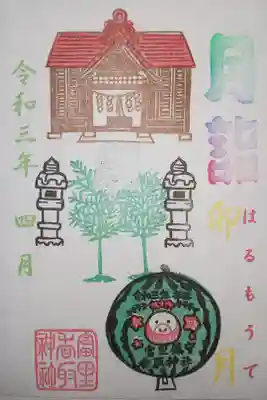 月詣卯月
はるもうで
令和三年 四月
富里
香取
神社